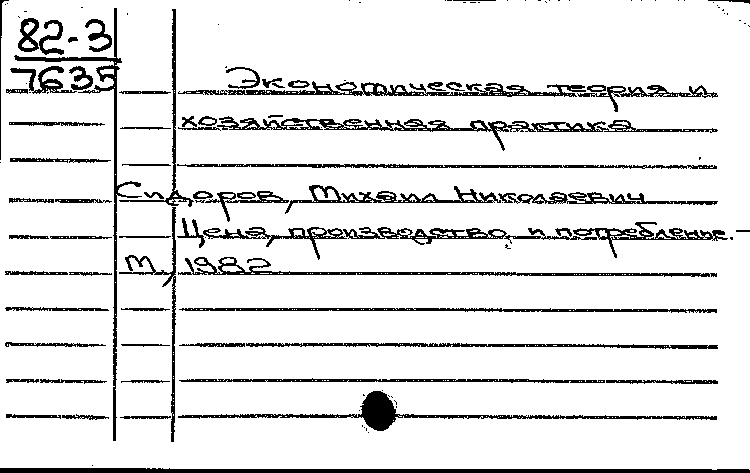 82-3
7635
Экономическая теория и
хозяйственная практика
Сидоров, Михаил Николаевич
Цена, производство, и потребленье. —
М., 1982